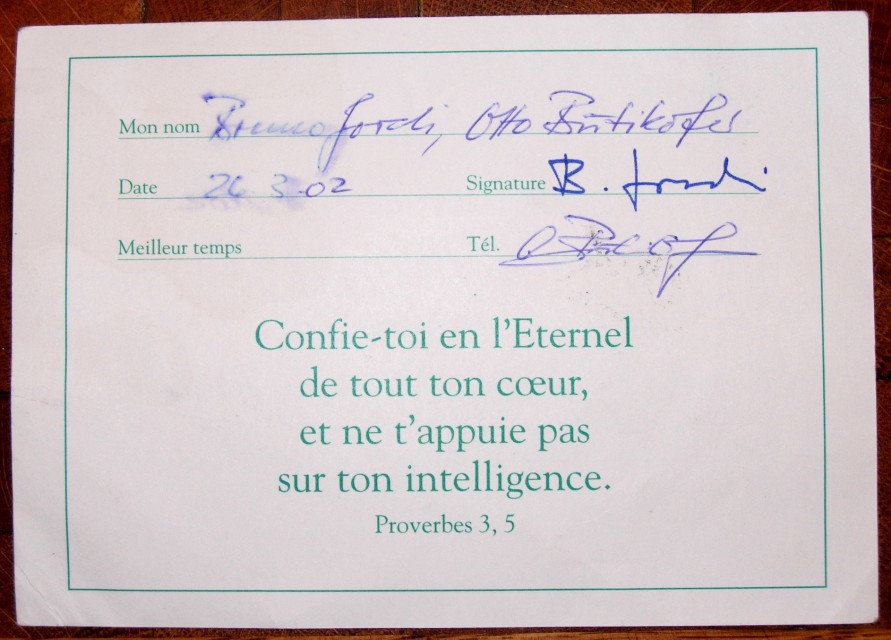 Mon nom Bruno Jordi, Otto Bütikofer
Date 26.3.02 Signature B. Jordi
Meilleur temps Tél.
Confie-toi en l'Eternel
de tout ton cœur,
et ne t'appuie pas
sur ton intelligence.
Proverbes 3, 5